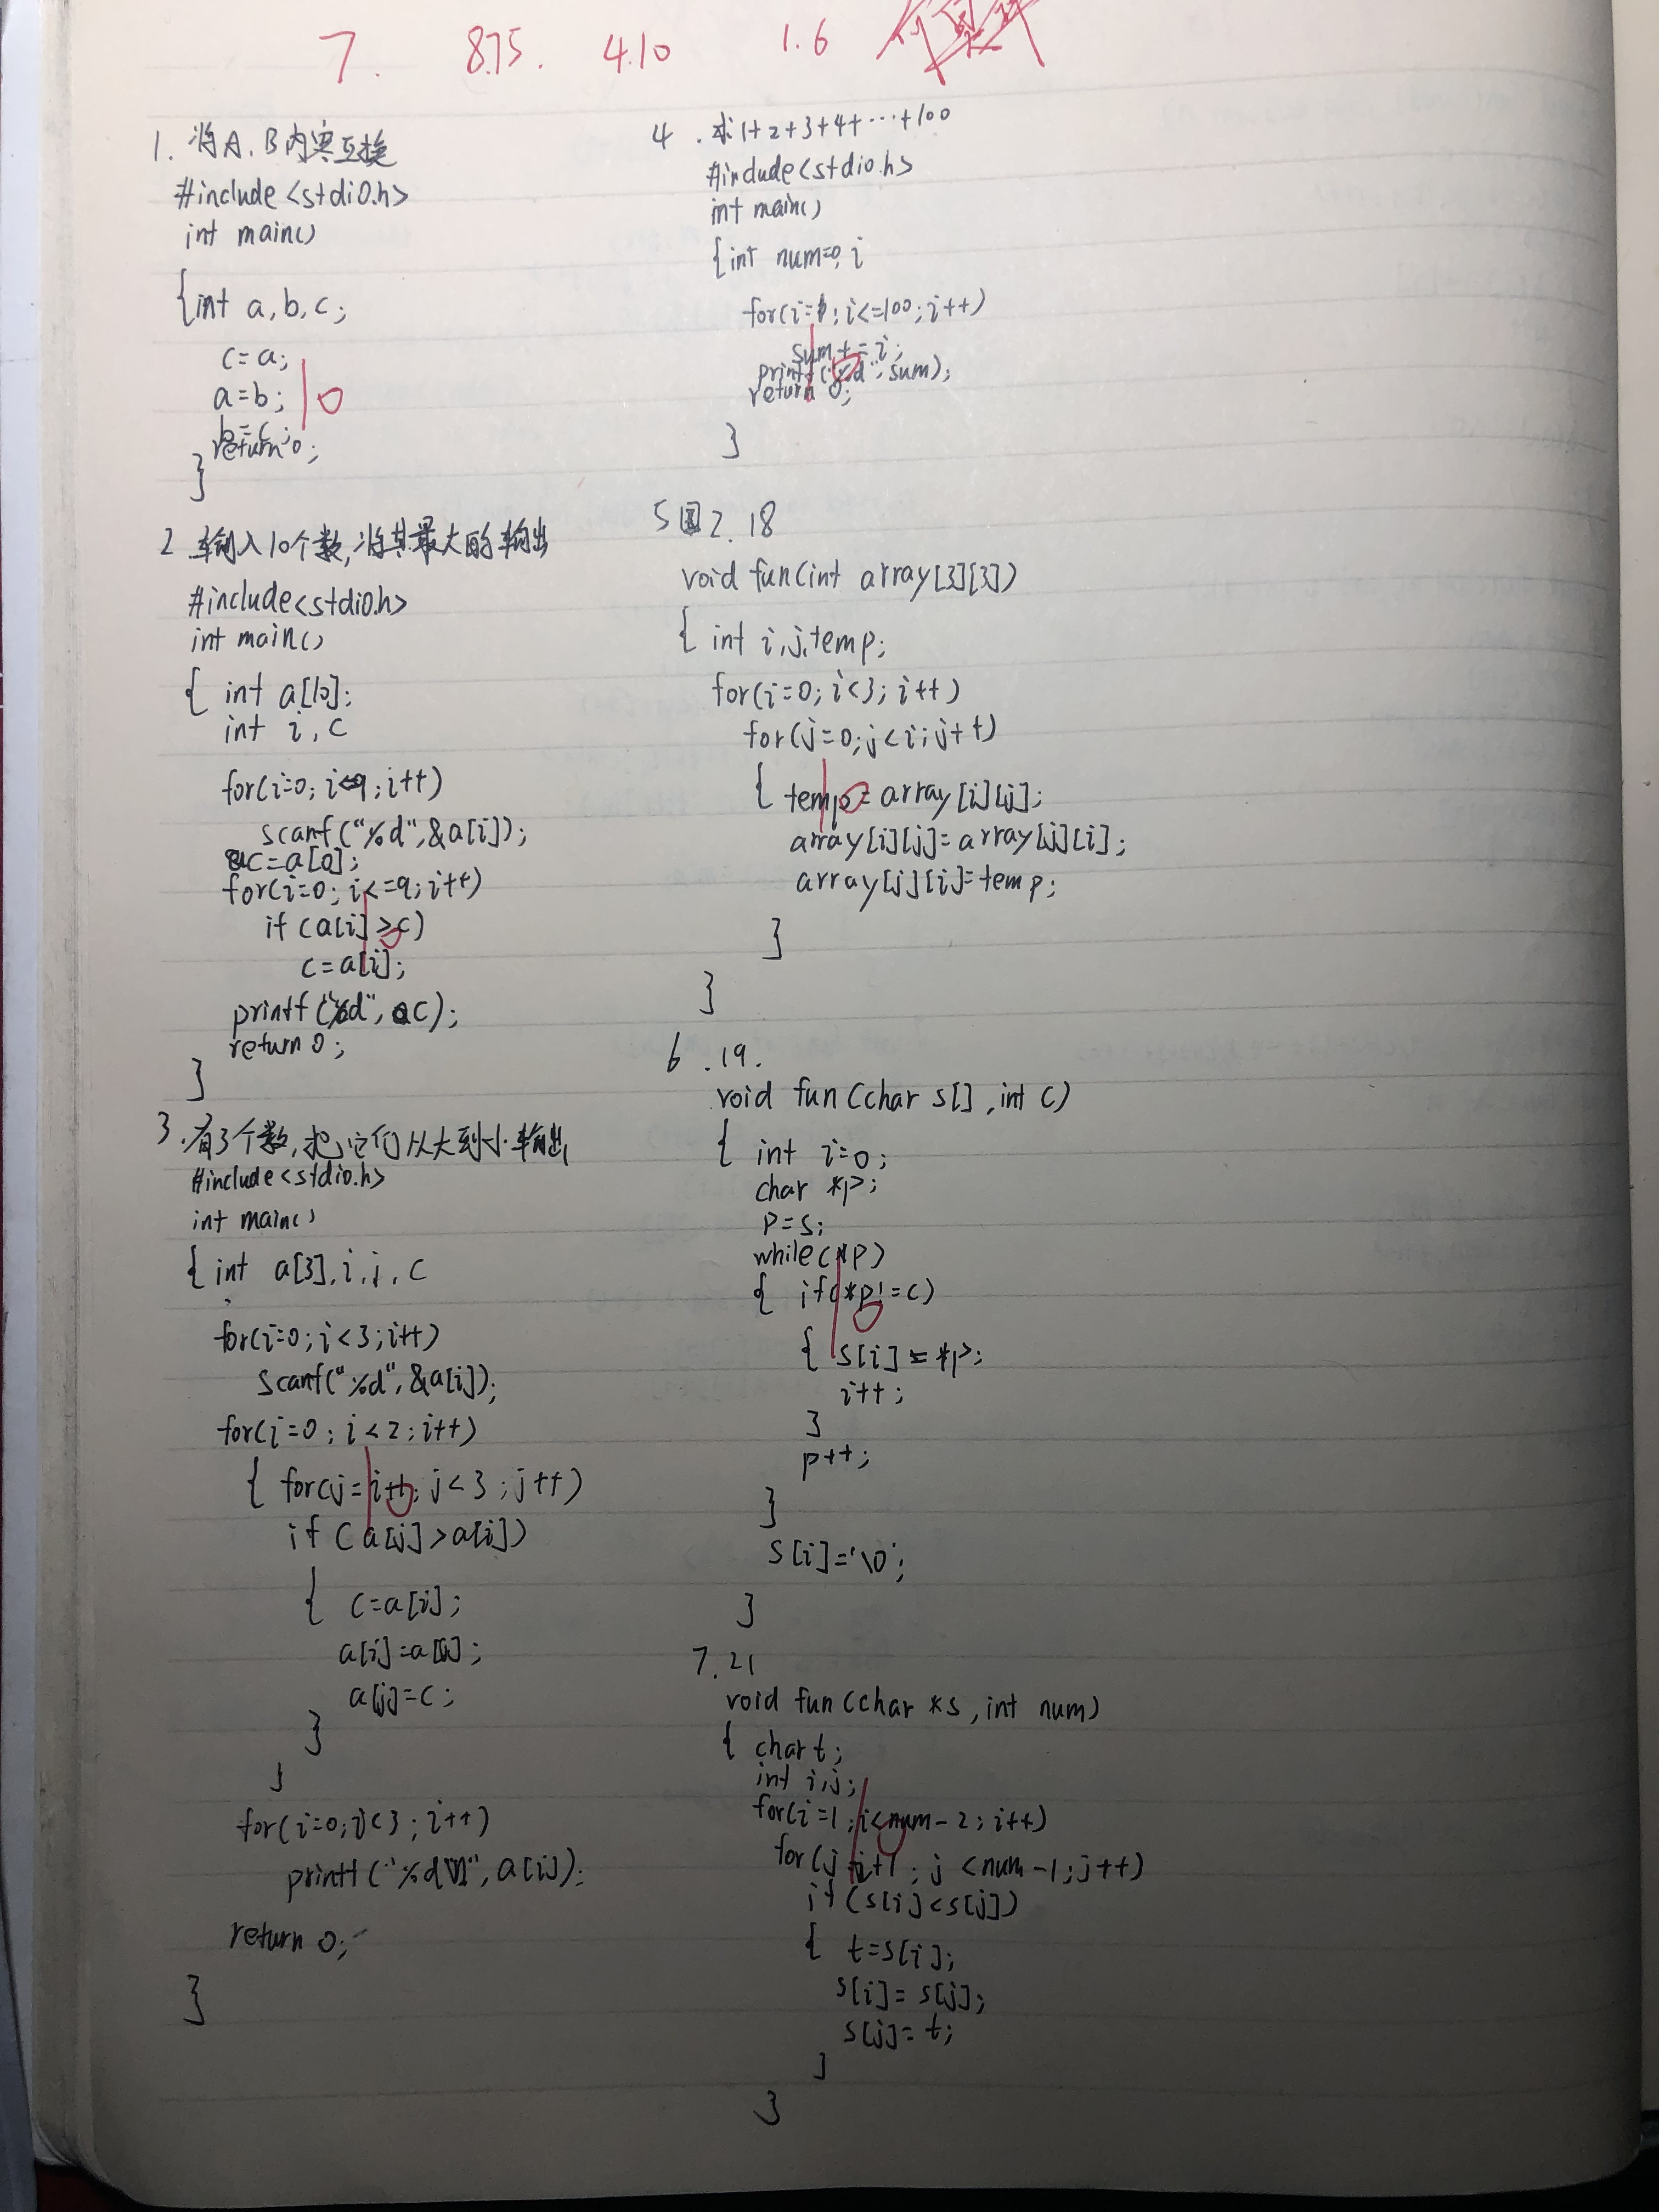 7. 8.75. 4.10 1.6
1. 将A、B内容互换
#include<stdio.h>
int main()
{int a,b,c;
c=a;
a=b;
b=c;
return 0;
}
2 输入10个数,将其最大的输出
#include<stdio.h>
int main()
{ int a[10];
int i, c
for(i=0; i<=9; i++)
scanf("%d",&a[i]);
c=a[0];
for(i=0; i<=9; i++)
if (a[i]>c)
c=a[i];
printf("%d", c);
return 0;
}
3. 有3个数,把它们从大到小输出
#include<stdio.h>
int main()
{ int a[3], i, j, c
;
for(i=0; i<3; i++)
scanf("%d", &a[i]);
for(i=0; i<2; i++)
{ for(j=i+1; j<3; j++)
if (a[j]>a[i])
{ c=a[i];
a[i]=a[j];
a[j]=c;
}
}
for(i=0; i<3; i++)
printf("%d\n", a[i]);
return 0;
}
4. 求1+2+3+4+…+100
#include<stdio.h>
int main()
{int num=0, i
for(i=1; i<=100; i++)
sum+=i;
printf("%d", sum);
return 0;
}
5 2.18
void fun(int array[3][3])
{ int i,j,temp;
for(i=0; i<3; i++)
for(j=0; j<i; j++)
{ temp=array[i][j];
array[i][j]=array[j][i];
array[j][i]=temp;
}
}
6 .19.
void fun(char s[], int c)
{ int i=0;
char *p;
p=s;
while(*p)
{ if(*p!=c)
{ s[i]=*p;
i++;
}
p++;
}
s[i]='\0';
}
7.21
void fun(char *s, int num)
{ char t;
int i,j;
for(i=1; i<num-2; i++)
for(j=i+1; j<num-1; j++)
if(s[i]<s[j])
{ t=s[i];
s[i]=s[j];
s[j]=t;
}
}